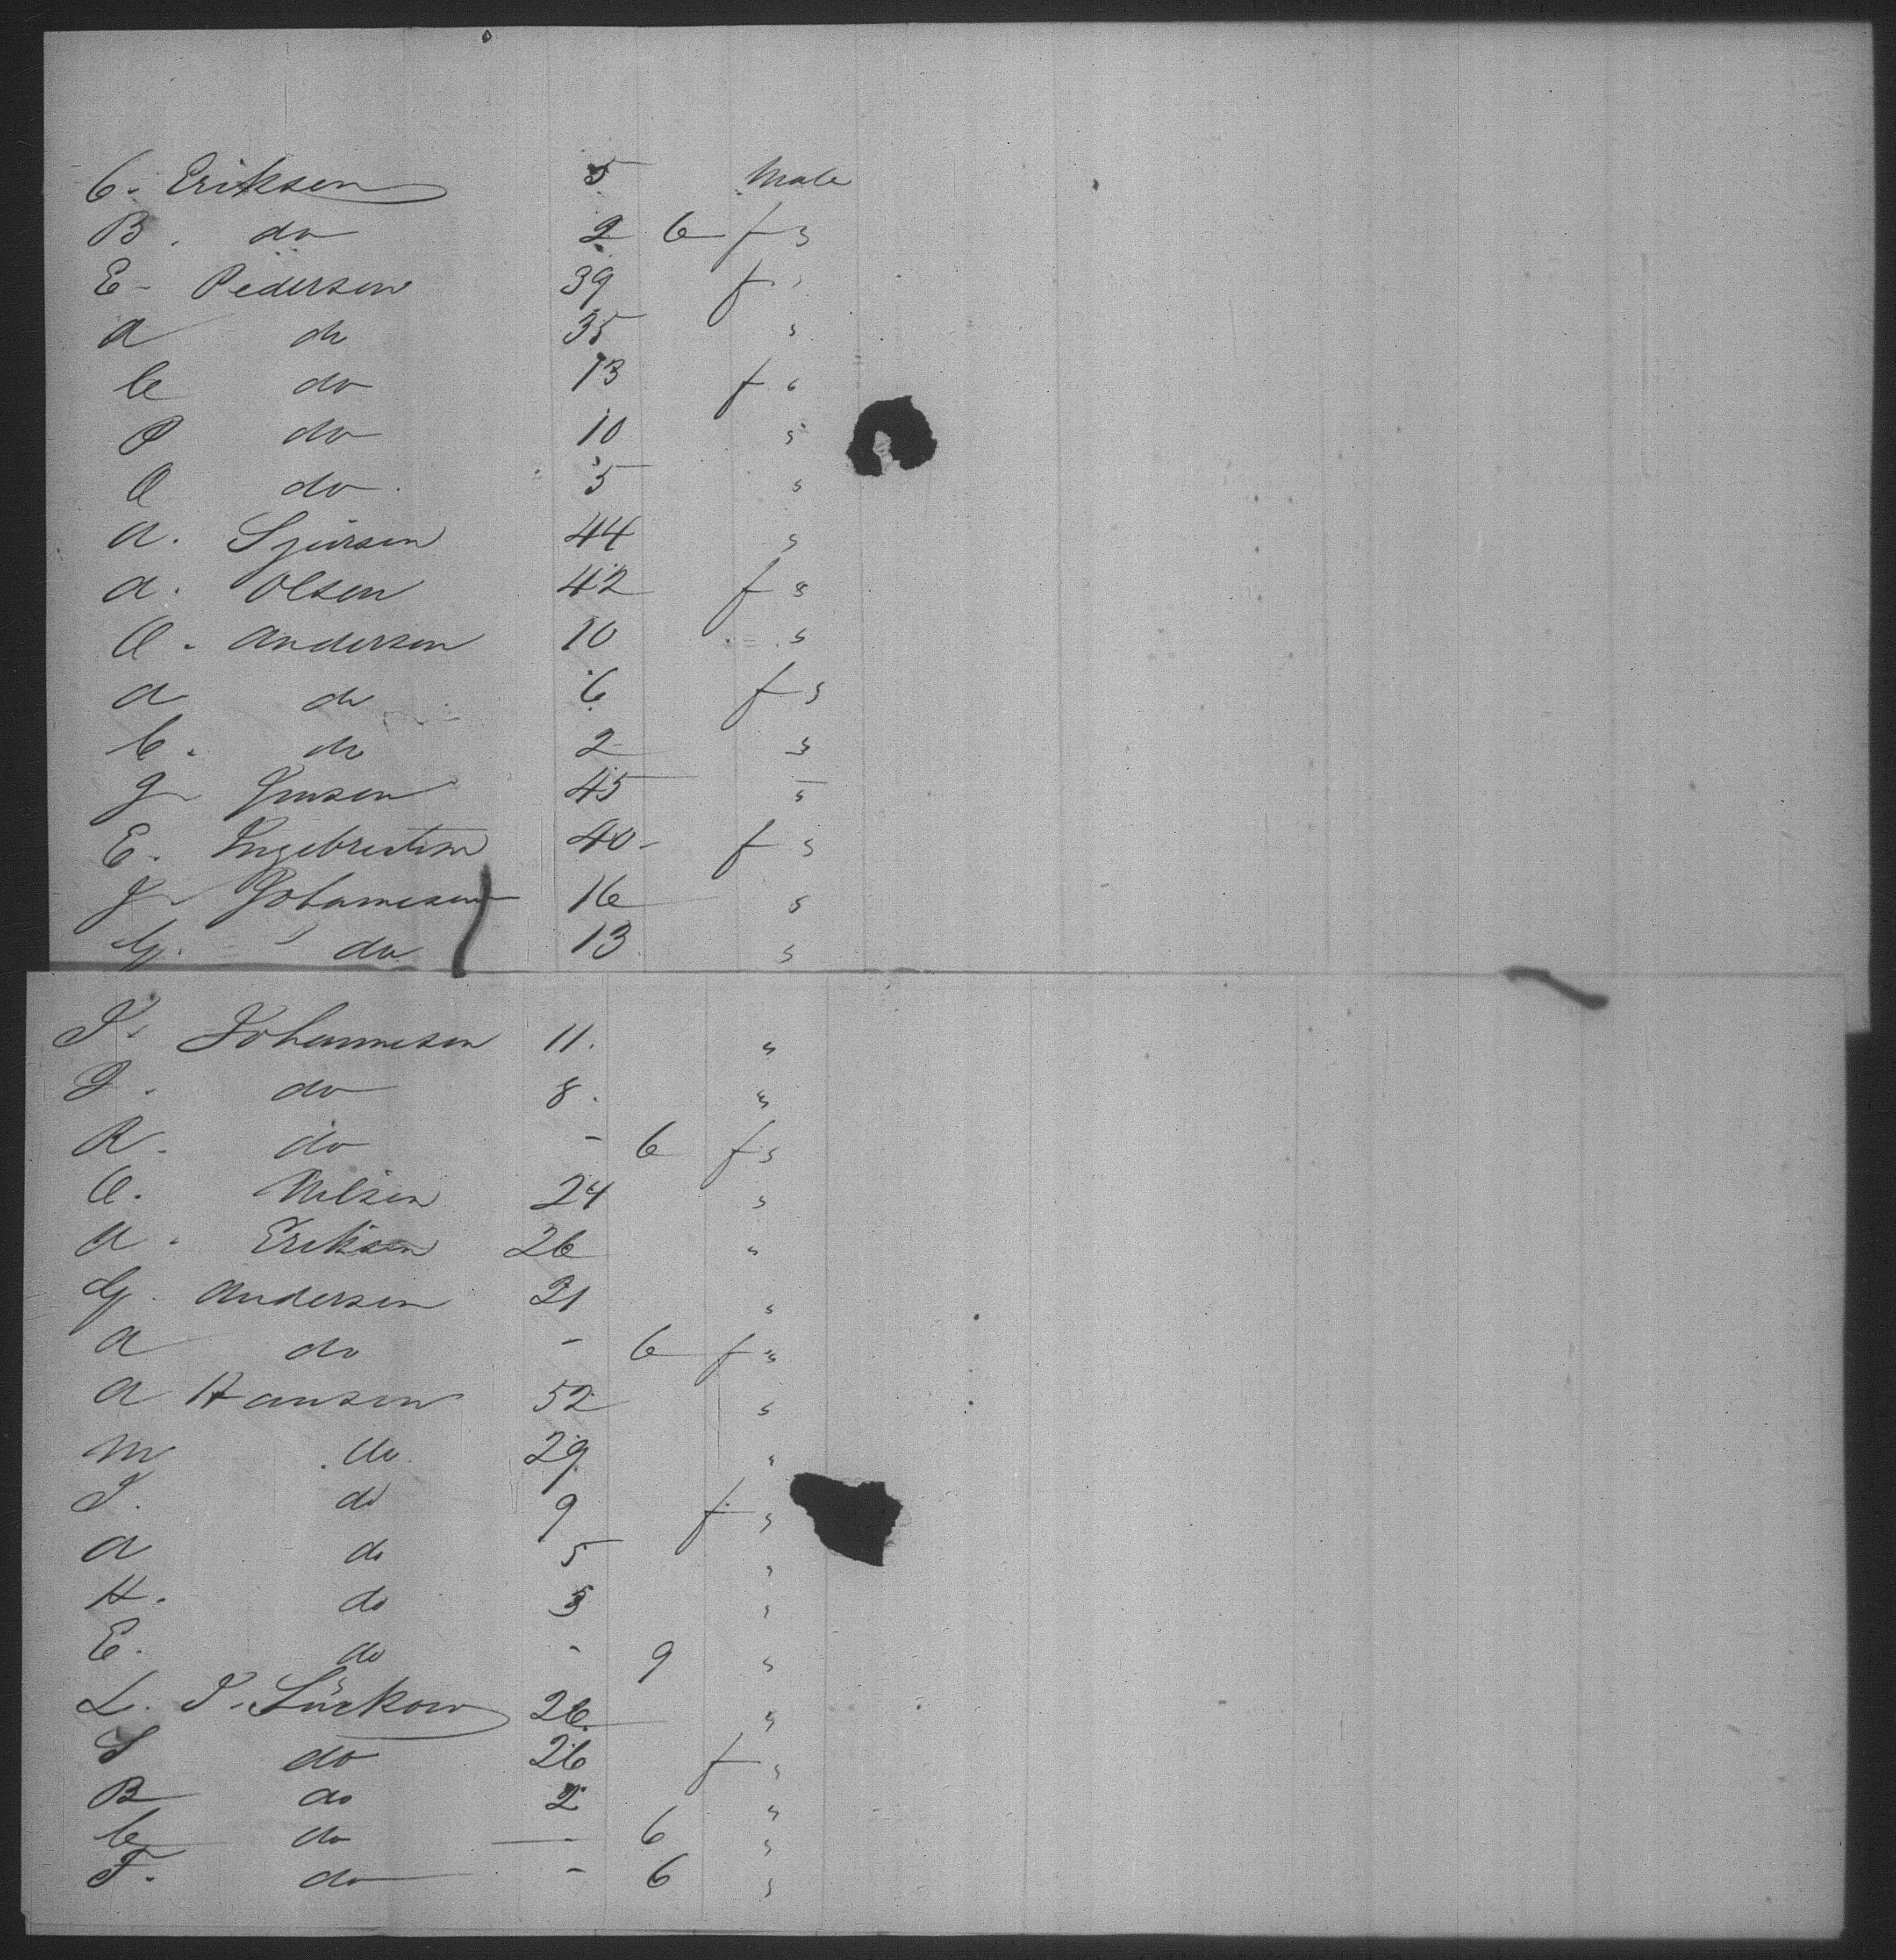 C. Eriksen 5 Male
B. do 2 6 f "
E - Pedersen 39 f "
A do 35 "
C do 13 f "
P do 10 "
O do 5 "
A. Sjursen 44 "
A. Olsen 42 f "
O. Andersen 10 "
A do 6 f "
C. do 2 "
J Jensen 45 "
E. Ingebretsen 40 - f "
J Johannesen 16 "
G. do 13 "
J. Johannesen 11. "
J. do 8. "
R. do - 6 f "
O. Nilsen 24 "
A. Eriksen 26 "
G. Andersen 21 "
A do - 6 f "
A Hansen 52 "
M do 29 "
J. do 9 f "
A do 5 "
H. do 3 "
E. do - 9 "
L. J. Lürkow 26 "
S do 26 f "
B do 2 "
C do — 6 "
F. do - 6 "